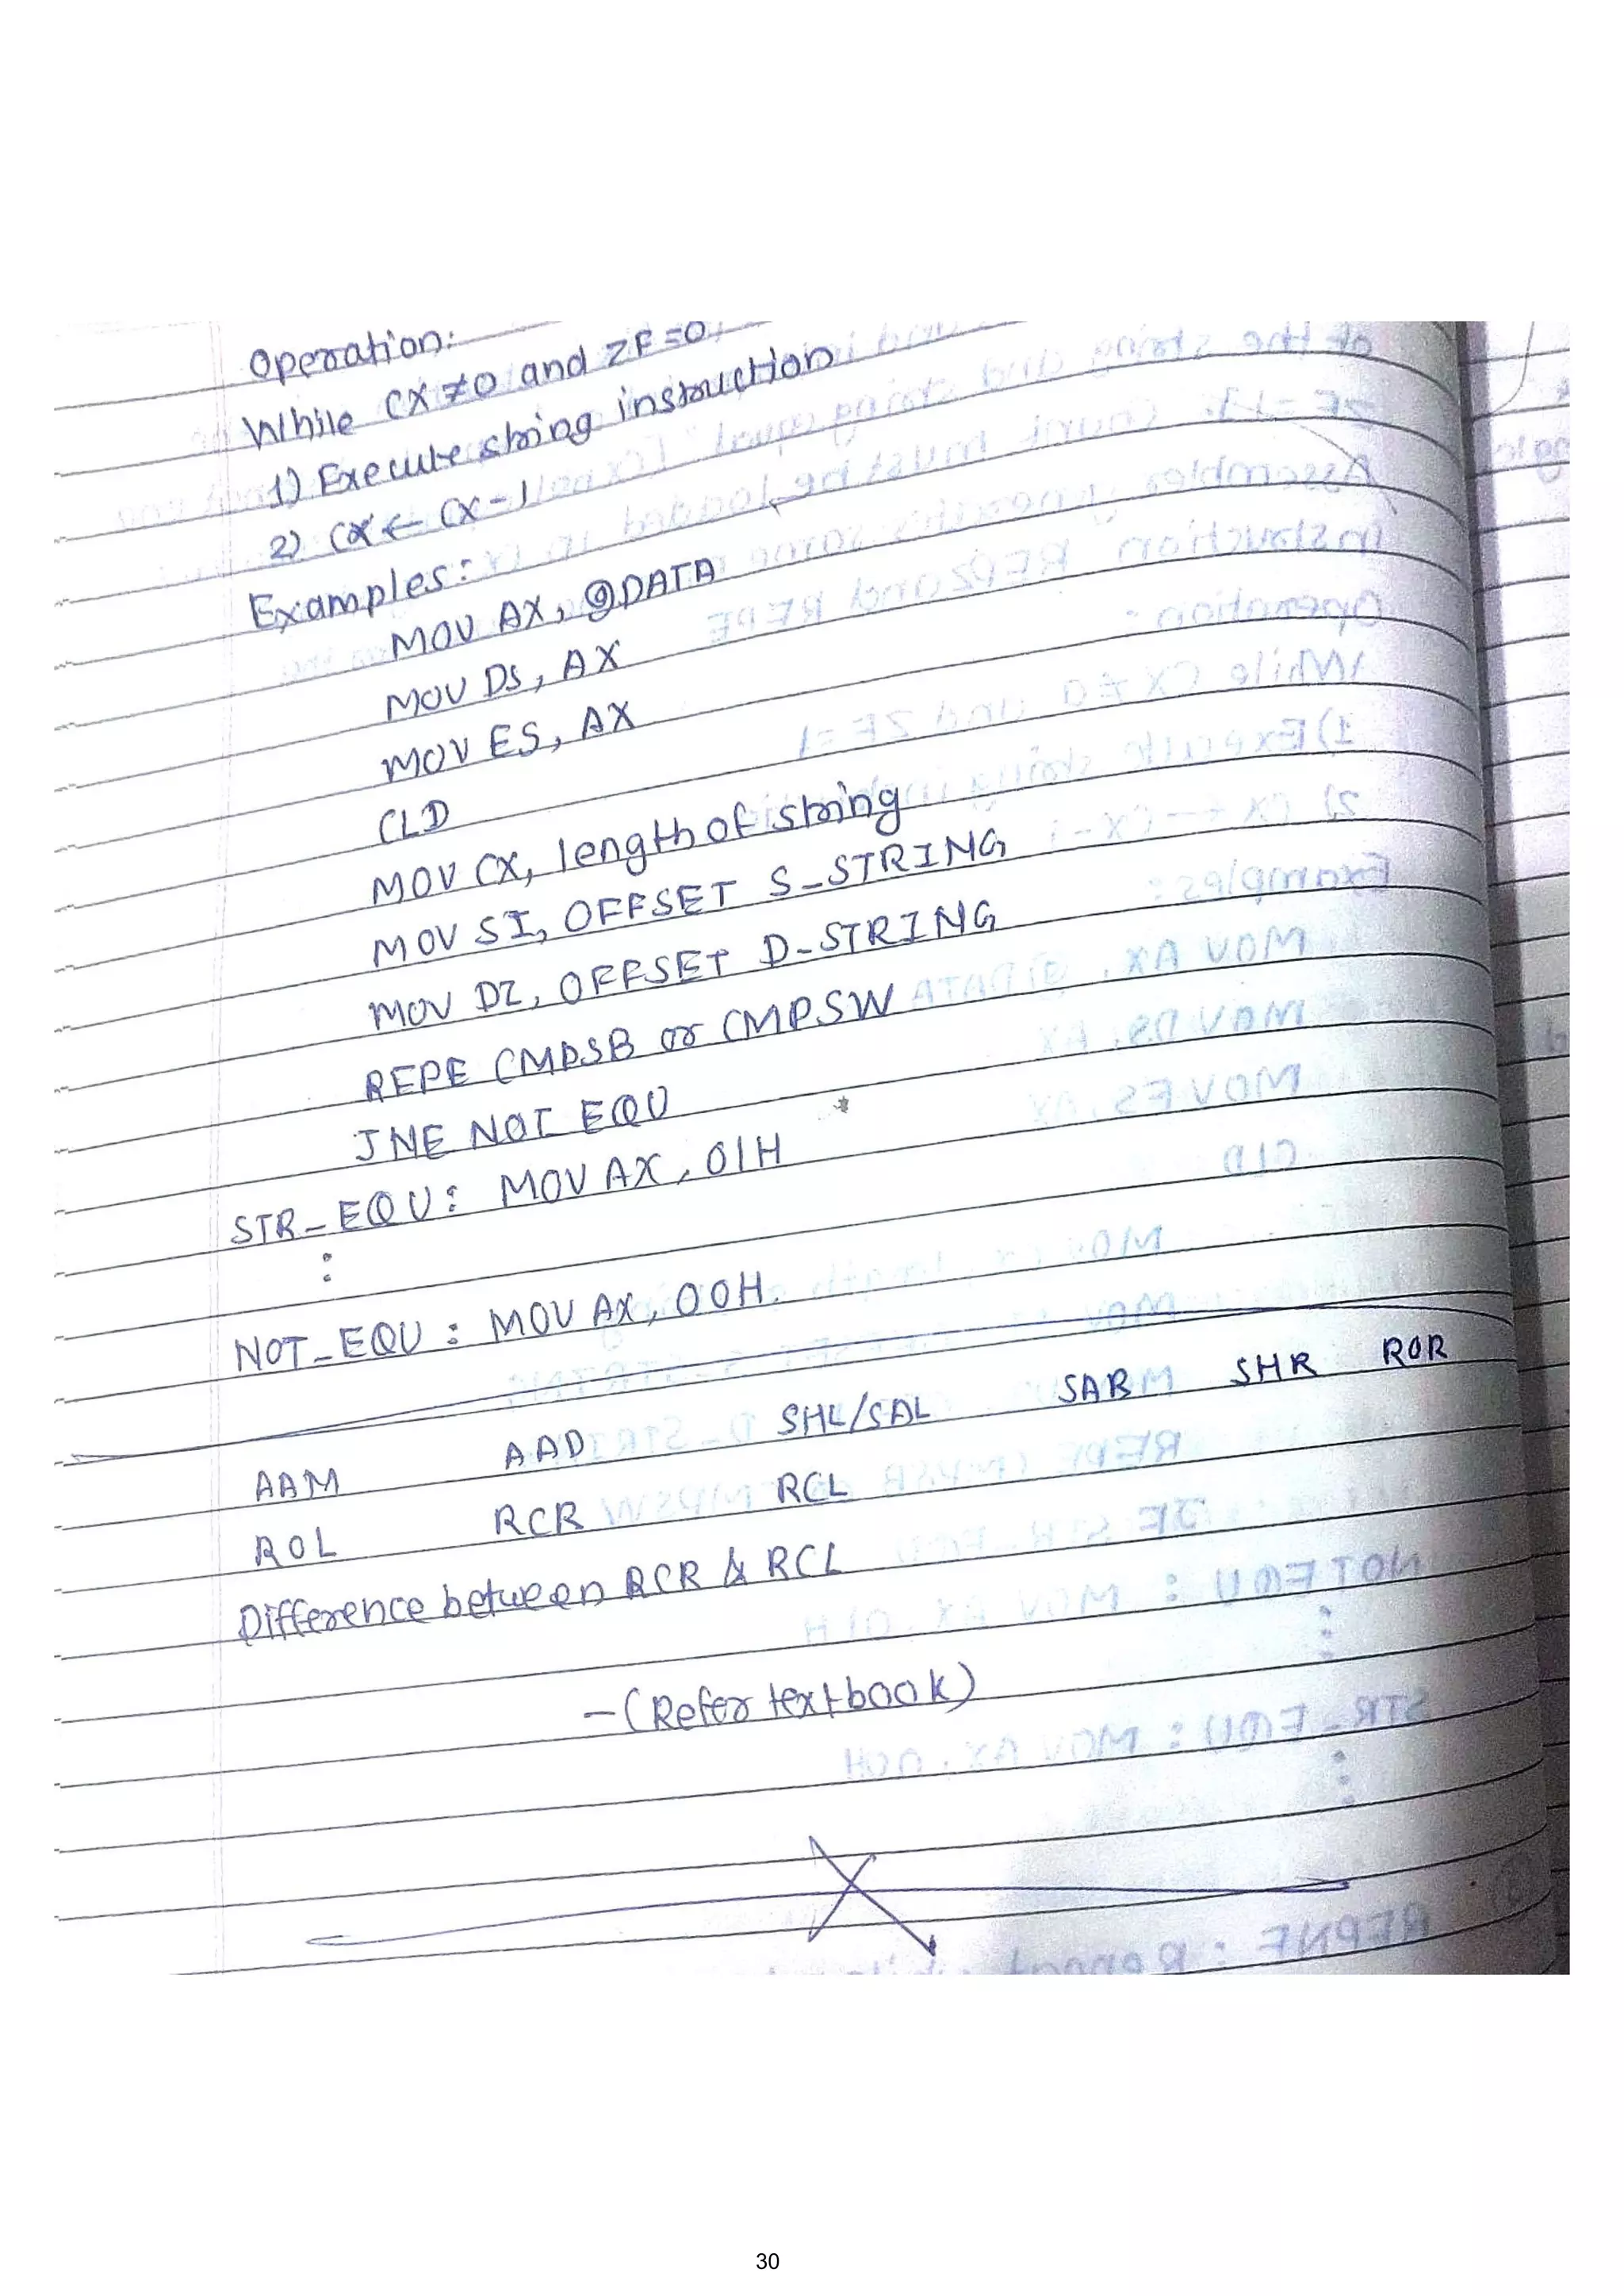 Operation:
While CX ≠ 0 and ZF = 0
1) Execute string instruction
2) CX ← CX - 1
Examples:
MOV AX, @DATA
MOV DS, AX
MOV ES, AX
CLD
MOV CX, length of string
MOV SI, OFFSET S_STRING
MOV DI, OFFSET D-STRING
REPE CMPSB or CMPSW
JNE NOT EQU
STR_EQU: MOV AX, 01H
:
NOT_EQU: MOV AX, 00H.
AAM AAD SHL/SAL SAR SHR ROR
ROL RCR RCL
Difference between RCR & RCL
- (Refer textbook)
30